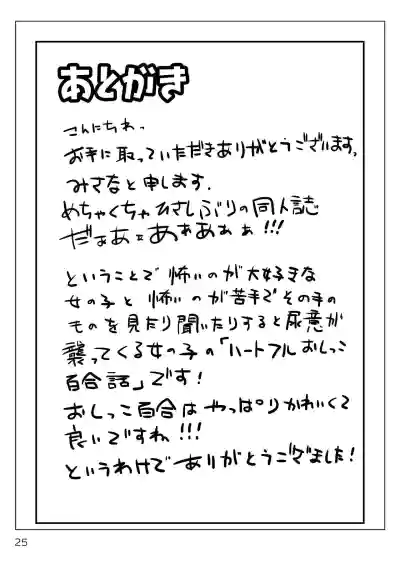 あとがき
こんにちわ、
お手に取っていただきありがとうございます。
みさなと申します。
めちゃくちゃひさしぶりの同人誌
だぁぁぁあぁあぁぁ!!!
ということで怖いのが大好きな
女の子と怖いのが苦手でその手の
ものを見たり聞いたりすると尿意が
襲ってくる女の子の「ハートフルおしっこ
百合話」です!
おしっこ百合はやっぱりかわいくて
良いですね!!!
というわけでありがとうございました!
25